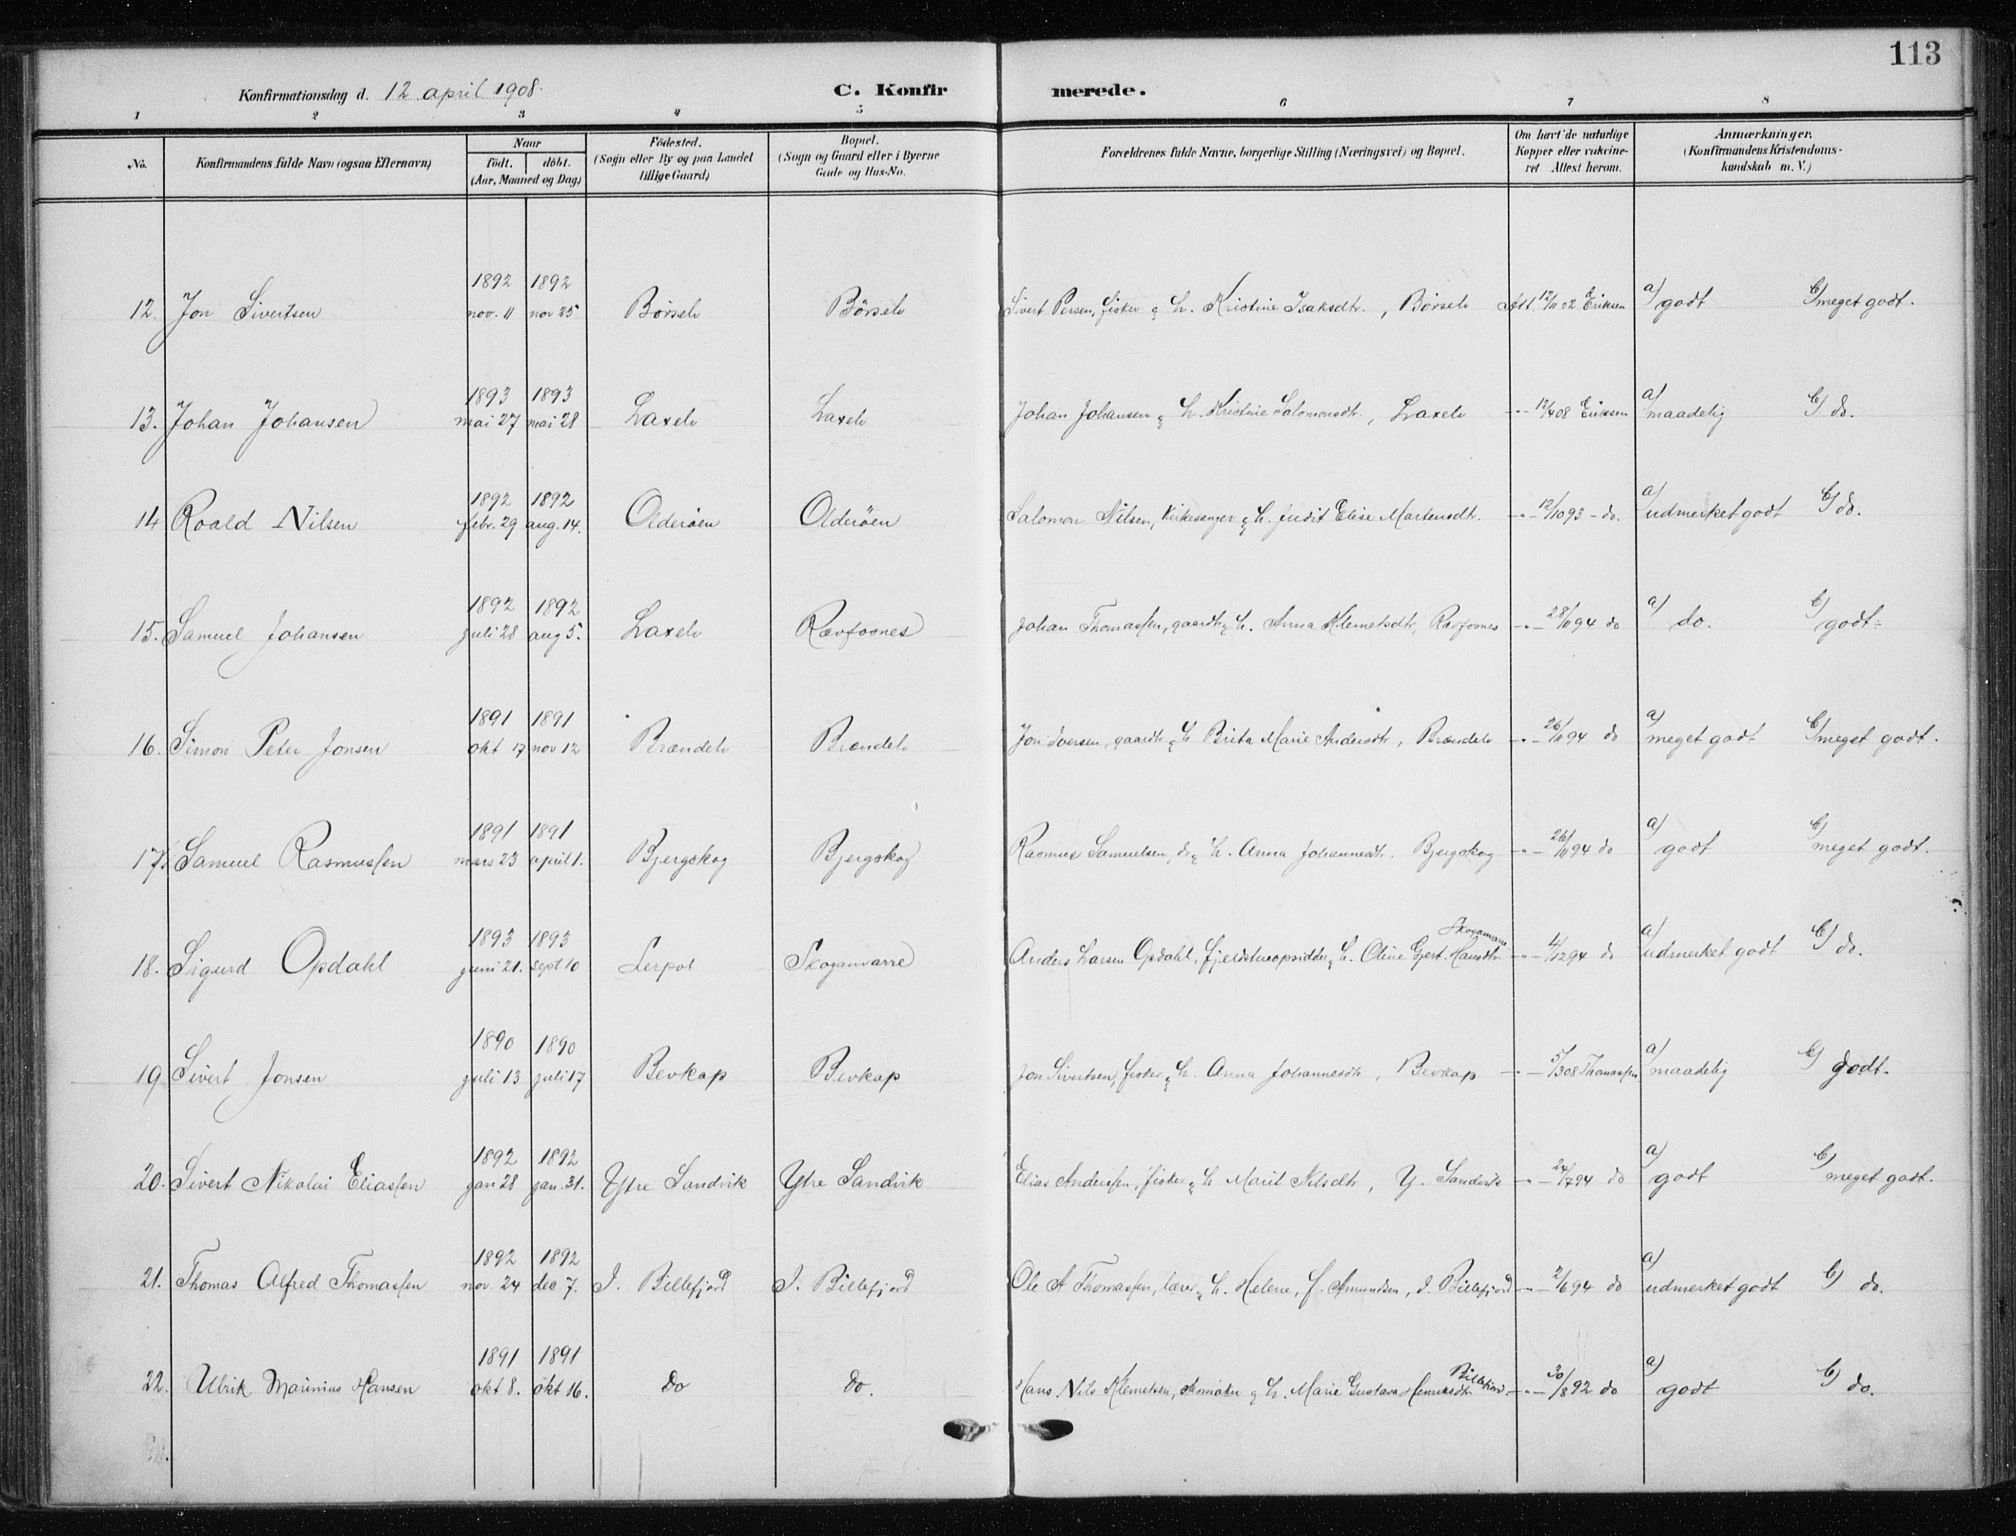 113
Konfirmationsdag d. 12 april 1908. C. Konfirmerede.
1 2 3 4 5 6 7 8
No. Konfirmandens fulde Navn (ogsaa Efternavn) Naar født. døbt. (Aar, Maaned og Dag) Fødested. (Sogn eller By og paa Landet tillige Gaard) Bopæl. (Sogn og Gaard eller i Byerne Gade og Hus-No. Forældrenes fulde Navne, borgerlige Stilling (Næringsvei) og Bopæl. Om havt de naturlige Kopper eller vakcineret Attest herom. Anmærkninger. (Konfirmandens Kristendomskundskab m. V.)
1892 1892
12. Jon Sivertsen nov. 11 nov 25 Børselv Børselv Sivert Persen, fisker & h. Kristine Isaksdtr., Børselv Att 12/11 02 Eriksen a) godt b) meget godt.
1893 1893
13. Johan Johansen mai 27 mai 28 Laxelv Laxelv Johan Johansen & h. Kristine Salomonsdtr., Laxelv -"- 12/4 08 Eriksen a) maadelig b) do.
1892 1892
14 Roald Nilsen febr. 29 aug. 14. Olderöen Olderöen Salomon Nilsen, Kirkesanger & h. Judit Elise Martensdtr. -"- 12/10 93 - do. a) udmerket godt b) do.
1892 1892
15. Samuel Johansen juli 28 aug 5. Laxelv Rævfosnes Johan Thomassen, gaardbr & h. Anna Klemetsdtr, Rævfosnes -"- 28/11 94 do a) do. b) godt.
1891 1891
16. Simon Peter Jonsen okt 17 nov 12 Brændelv Brændelv Jon Iversen, gaardbr & h Brita Marie Andersdtr, Brændelv -"- 26/11 94 do a) meget godt b) meget godt.
1891 1891
17. Samuel Rasmussen mars 23 april 1. Bjergskog Bjergskog Rasmus Samuelsen, do & h. Anna Johannesdtr, Bjergskog -"- 26/11 94 do a) godt b) meget godt.
1893 1893
18. Sigurd Opdahl juni 21. sept 10 Lerpol Skoganvarre Anders Larsen Opdahl, fjeldstueopsidder & h. Oline Gjert. Hansdtr -"- 4/12 94 do a) udmerket godt b) do.
1890 1890
19 Sivert Jonsen juli 13 juli 17 Bevkap Bevkap Jon Sivertsen, fisker & h. Anna Johannesdtr, Bevkap -"- 5/3 08 Thomassen a) maadelig b) godt.
1892 1892
20. Sivert Nikolai Eliassen jan 28 jan. 31. Ytre Sandvik Ytre Sandvik Elias Anderssen, fisker & h Marit Nilsdtr, Y. Sandvik -"- 24/7 94 do a) godt b) meget godt.
1892 1892
21. Thomas Alfred Thomassen nov. 24 dec 7. I. Billefjord I. Billefjord Ole A Thomassen, lærer & h. Helene, f. Amundsen, I. Billefjord -"- 2/6 94 do a) udmerket godt b) do.
1891 1891
22. Ulrik Marinius Hansen okt 8. okt 16. do do. Hans Nils Klemetsen, skomaker & h. Marie Gustava Henriksdtr Billefjord -"- 30/8 92 do a) godt b) do.